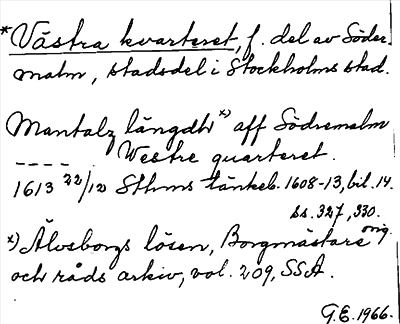 *Västra kvarteret, f. del av Söder-
malm, stadsdel i Stockholms stad.
Mantalz längdh x) aff Södremalm
---- Westre quarteret.
1613 22/12 Sthms tänkeb. 1608-13, bil. 14.
ss. 327, 330.
x) Älvsborgs lösen, Borgmästare orig.
och råds arkiv, vol. 209, SSA.
G.E. 1966.